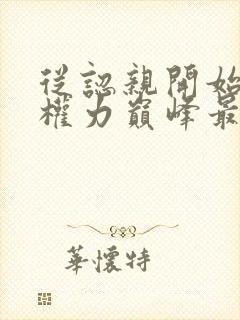 從認親開始
權力巔峰最
華懷特